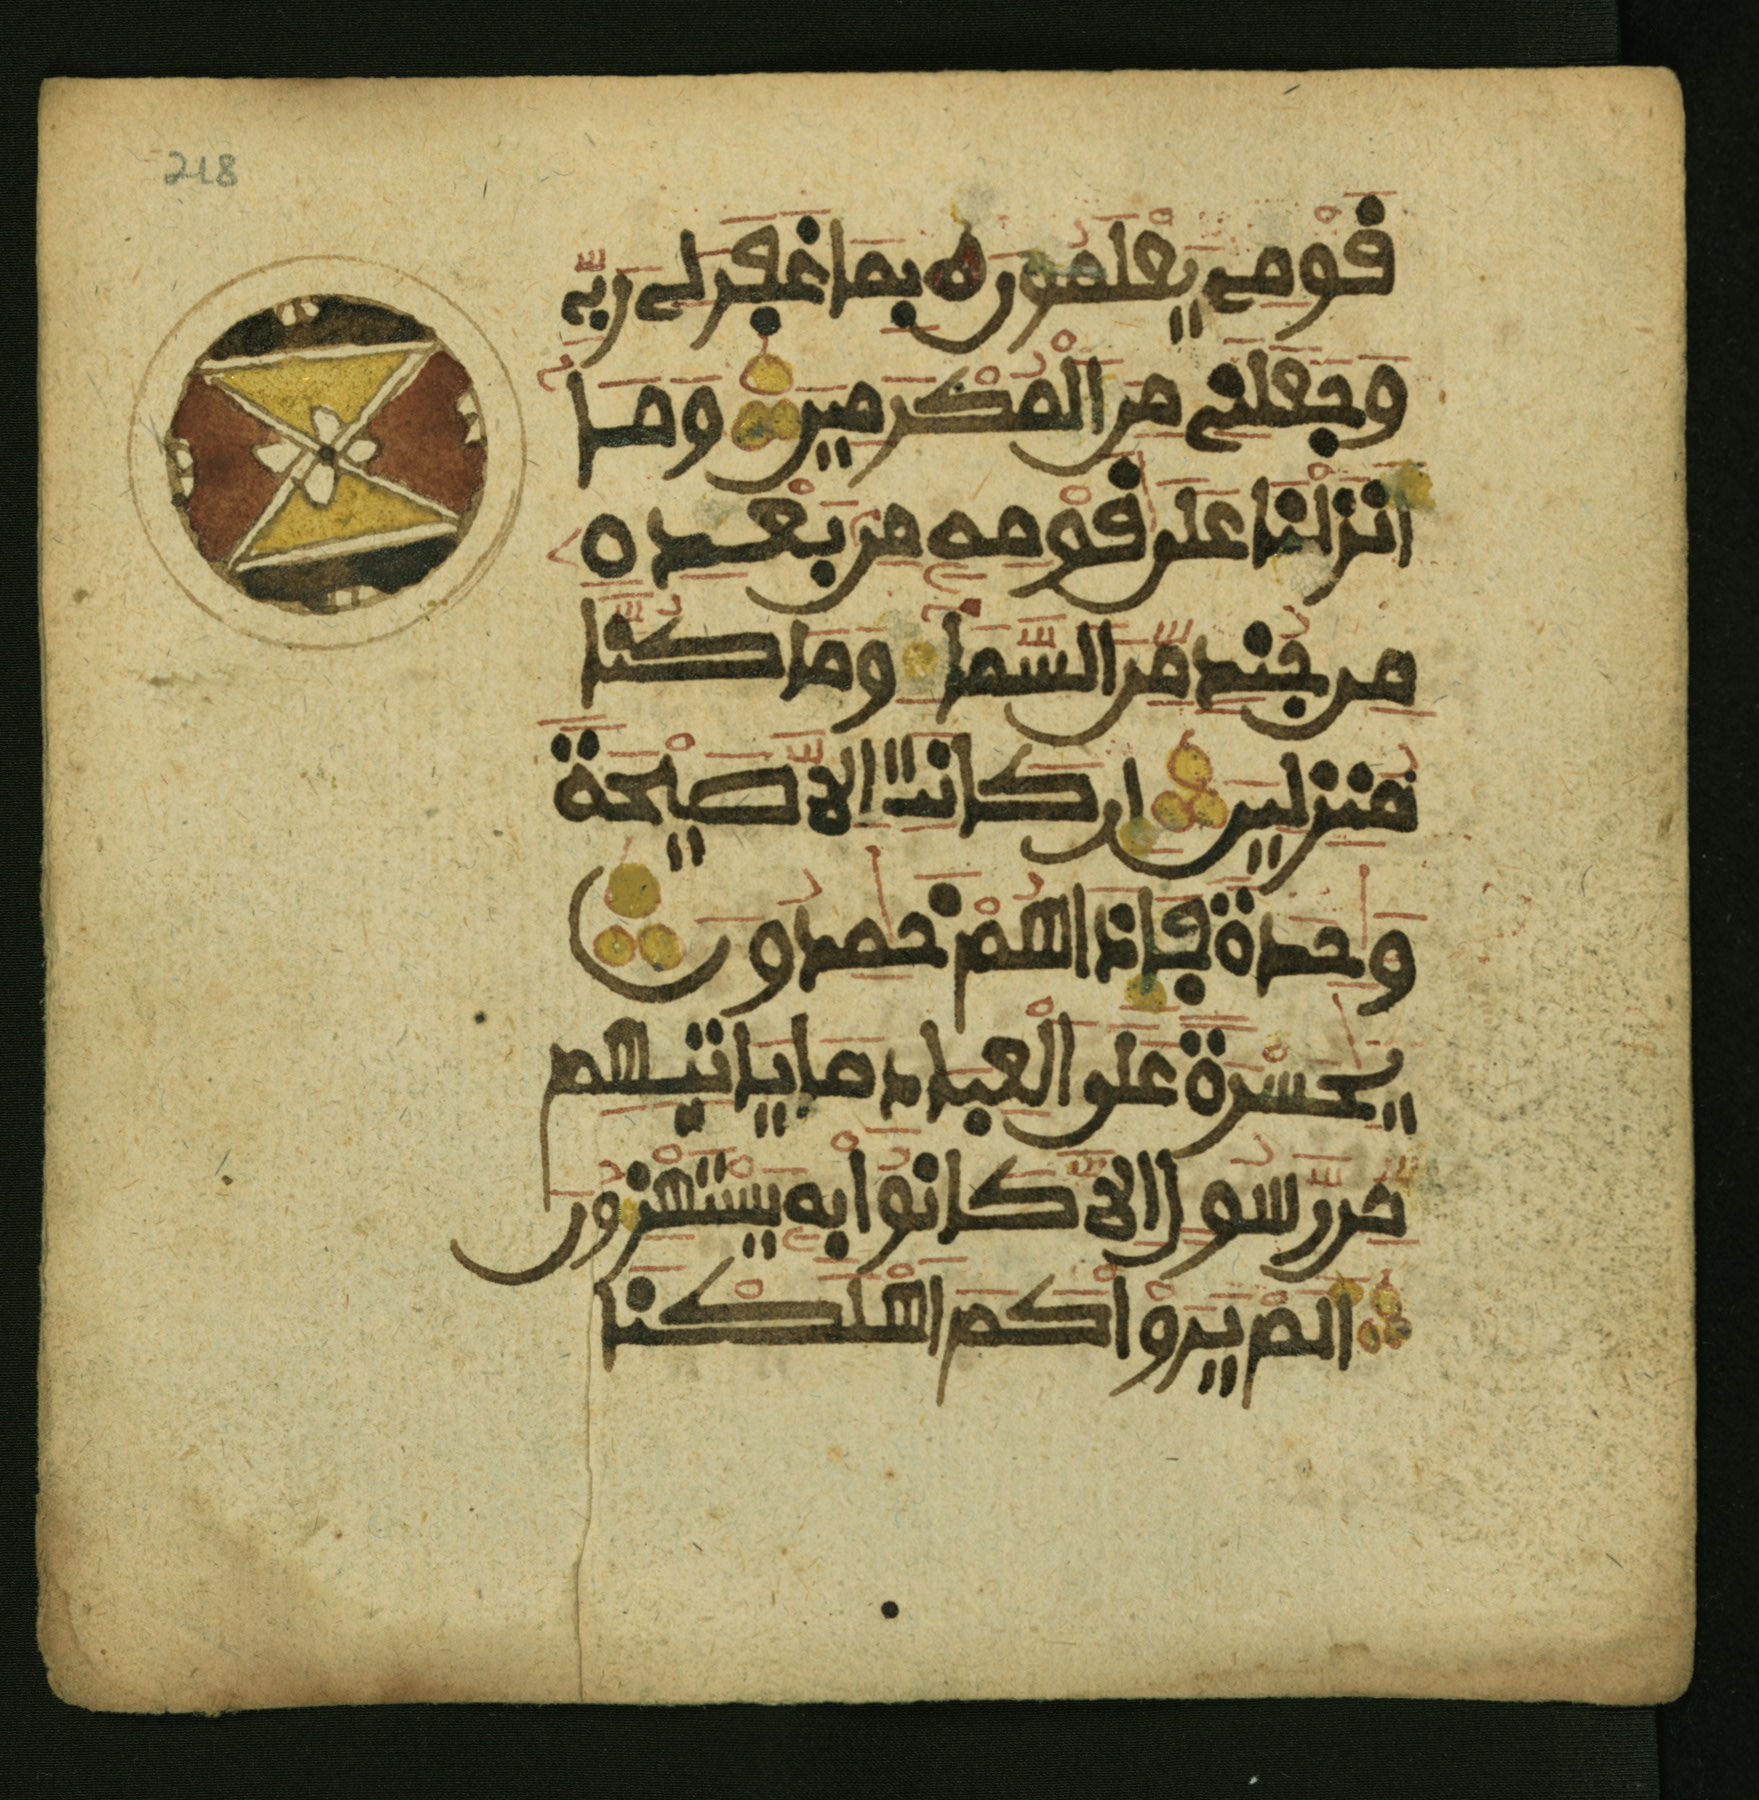 218
قَوْمِے يَعْلَمُونَ ٥ بِمَا غَفَرَ لِے رَبِّے
وَجَعَلَنِے مِنَ الْمُكْرَمِينَ وَمَا
أَنزَلْنَا عَلَىٰ قَوْمِهِ مِن بَعْدِهِ
مِن جُندٍ مِّنَ السَّمَا وَمَا كُنَّا
مُنزِلِينَ إِن كَانَتِ الاَّ صَيْحَةً
وَٰحِدَةً فَإِذَا هُمْ خَٰمِدُونَ
يَٰحَسْرَةً عَلَى الْعِبَادِ مَا يَاتِيهِم
مِّن رَّسُولٍ اِلاَّ كَانُوا بِهِ يَسْتَهْزِءُونَ
أَلَمْ يَرَوْا كَمَ اَهْلَكْنَا